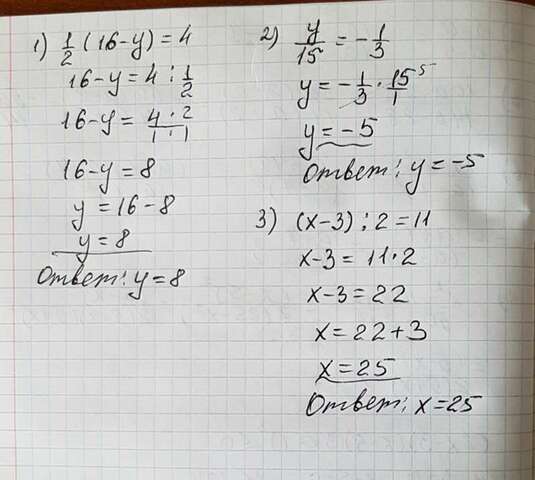 1) 1/2 (16-y) = 4
16-y = 4 : 1/2
16-y = 4 · 2 / 1 · 1
16-y = 8
y = 16-8
y = 8
Ответ: y = 8
2) y/15 = -1/3
y = -1/3 · 15/1 5
y = -5
Ответ: y = -5
3) (x-3) : 2 = 11
x-3 = 11 · 2
x-3 = 22
x = 22+3
x = 25
Ответ: x = 25